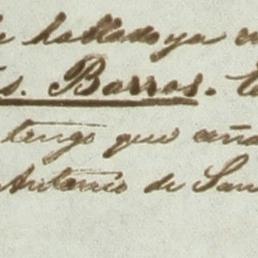 hablado ya
s. Barros.
tengo que aña
Antonio de San